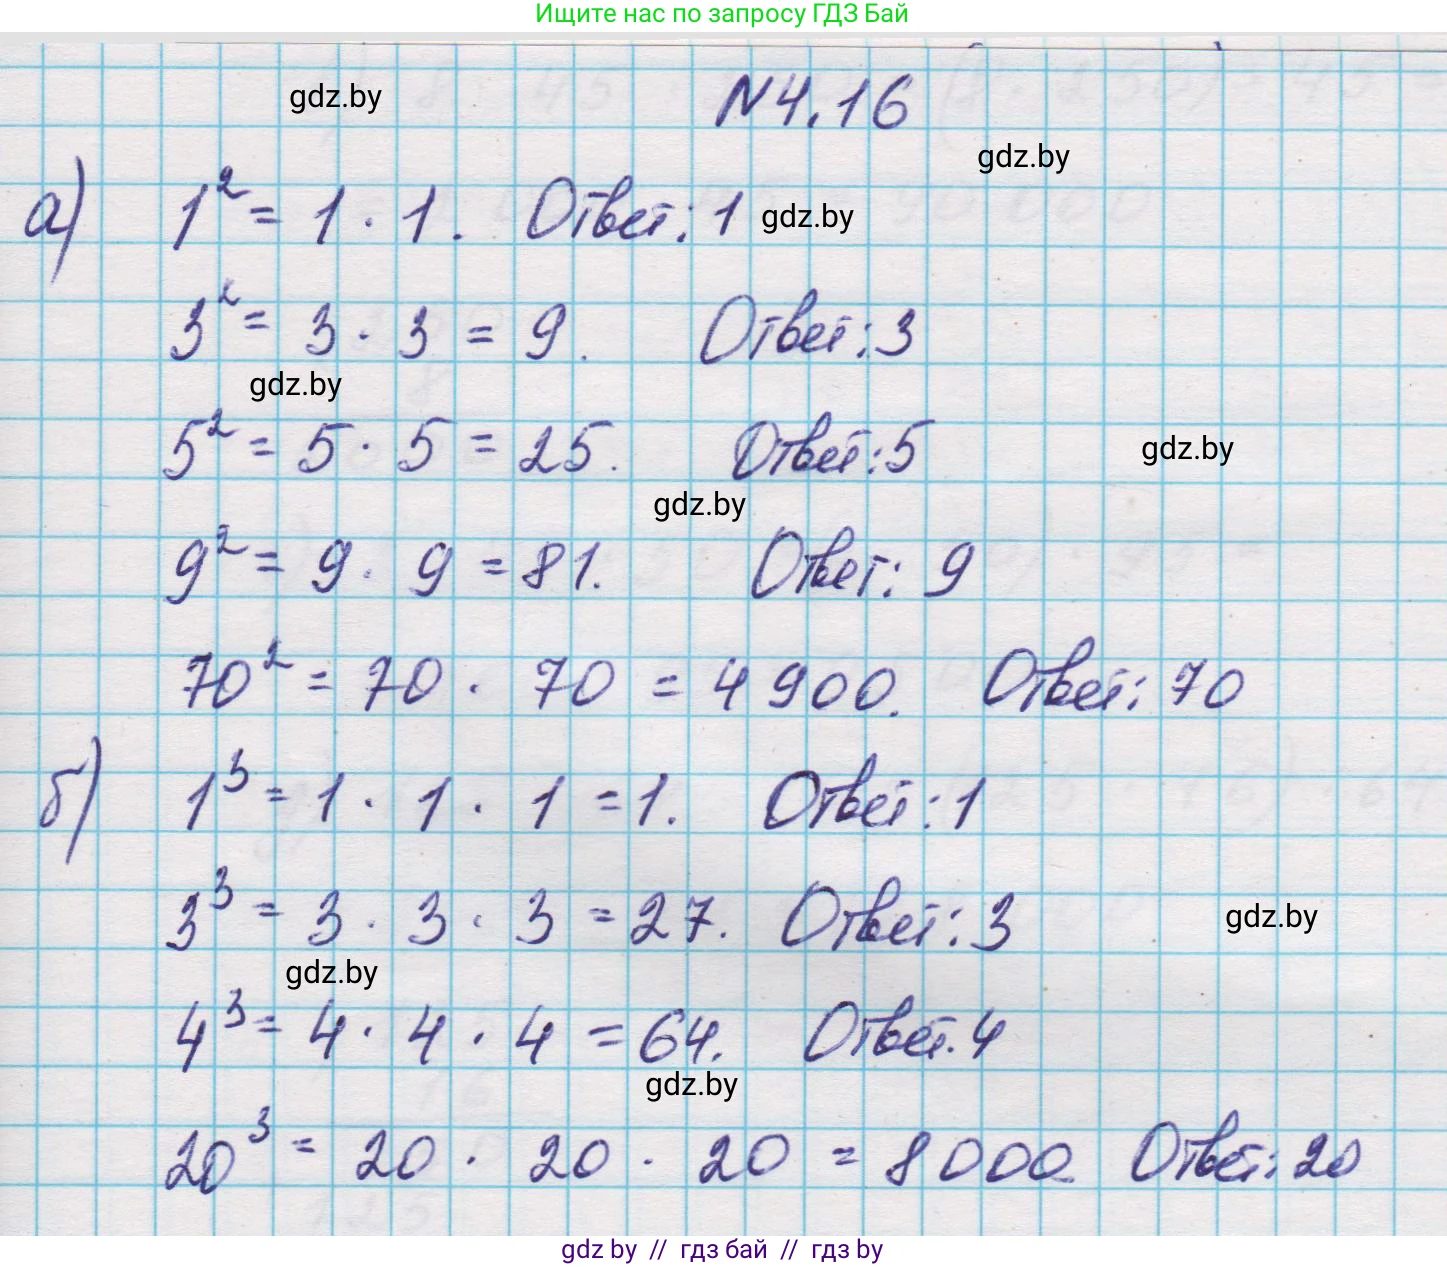 Ищите нас по запросу ГДЗ Бай
gdz.by
N4.16
gdz.by
а) 1² = 1 · 1. Ответ: 1
gdz.by
3² = 3 · 3 = 9. Ответ: 3
gdz.by
5² = 5 · 5 = 25. Ответ: 5
gdz.by
gdz.by
9² = 9 · 9 = 81. Ответ: 9
70² = 70 · 70 = 4900. Ответ: 70
б) 1³ = 1 · 1 · 1 = 1. Ответ: 1
3³ = 3 · 3 · 3 = 27. Ответ: 3
gdz.by
gdz.by
4³ = 4 · 4 · 4 = 64. Ответ. 4
gdz.by
20³ = 20 · 20 · 20 = 8000. Ответ: 20
gdz by // гдз бай // гдз by